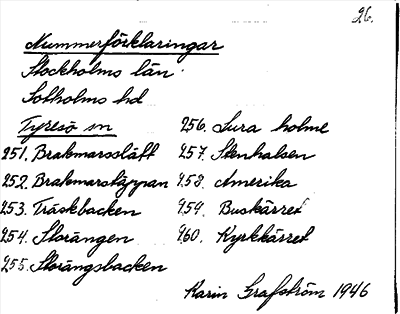 26.
Nummerförklaringar
Stockholms län.
Sotholms hd
Tyresö sn
251. Brakmarsslätt
252. Brakmarstäppan
253. Träskbacken
254. Storängen
255. Storängsbacken
256. Sura holme
257. Stenhalsen
258. Amerika
259. Buskärret
260. Kyrkkärret
Karin Grafström 1946